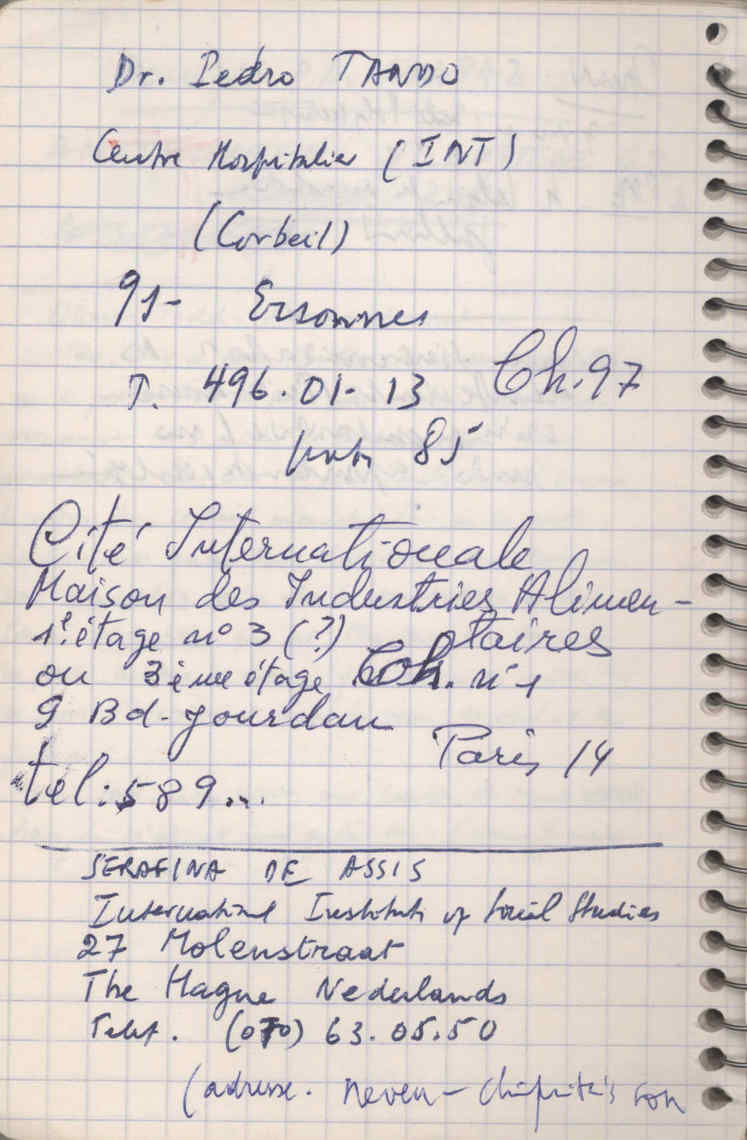 Dr. Pedro TANDO
Centre Hospitalier (INT)
(Corbeil)
91- Essonnes
T. 496.01-13 Ch.97
85
Cité Internationale
Maison des Industries Alimen-
taires
1e. étage no 3 (?)
ou 3ème étage Ch. no 1
9 Bd. Jourdan
Paris 14
tel: 589...
SERAFINA DE ASSIS
International Institute of Social Studies
27 Molenstraat
The Hague Nederlands
Telef. (070) 63.05.50
(adresse.